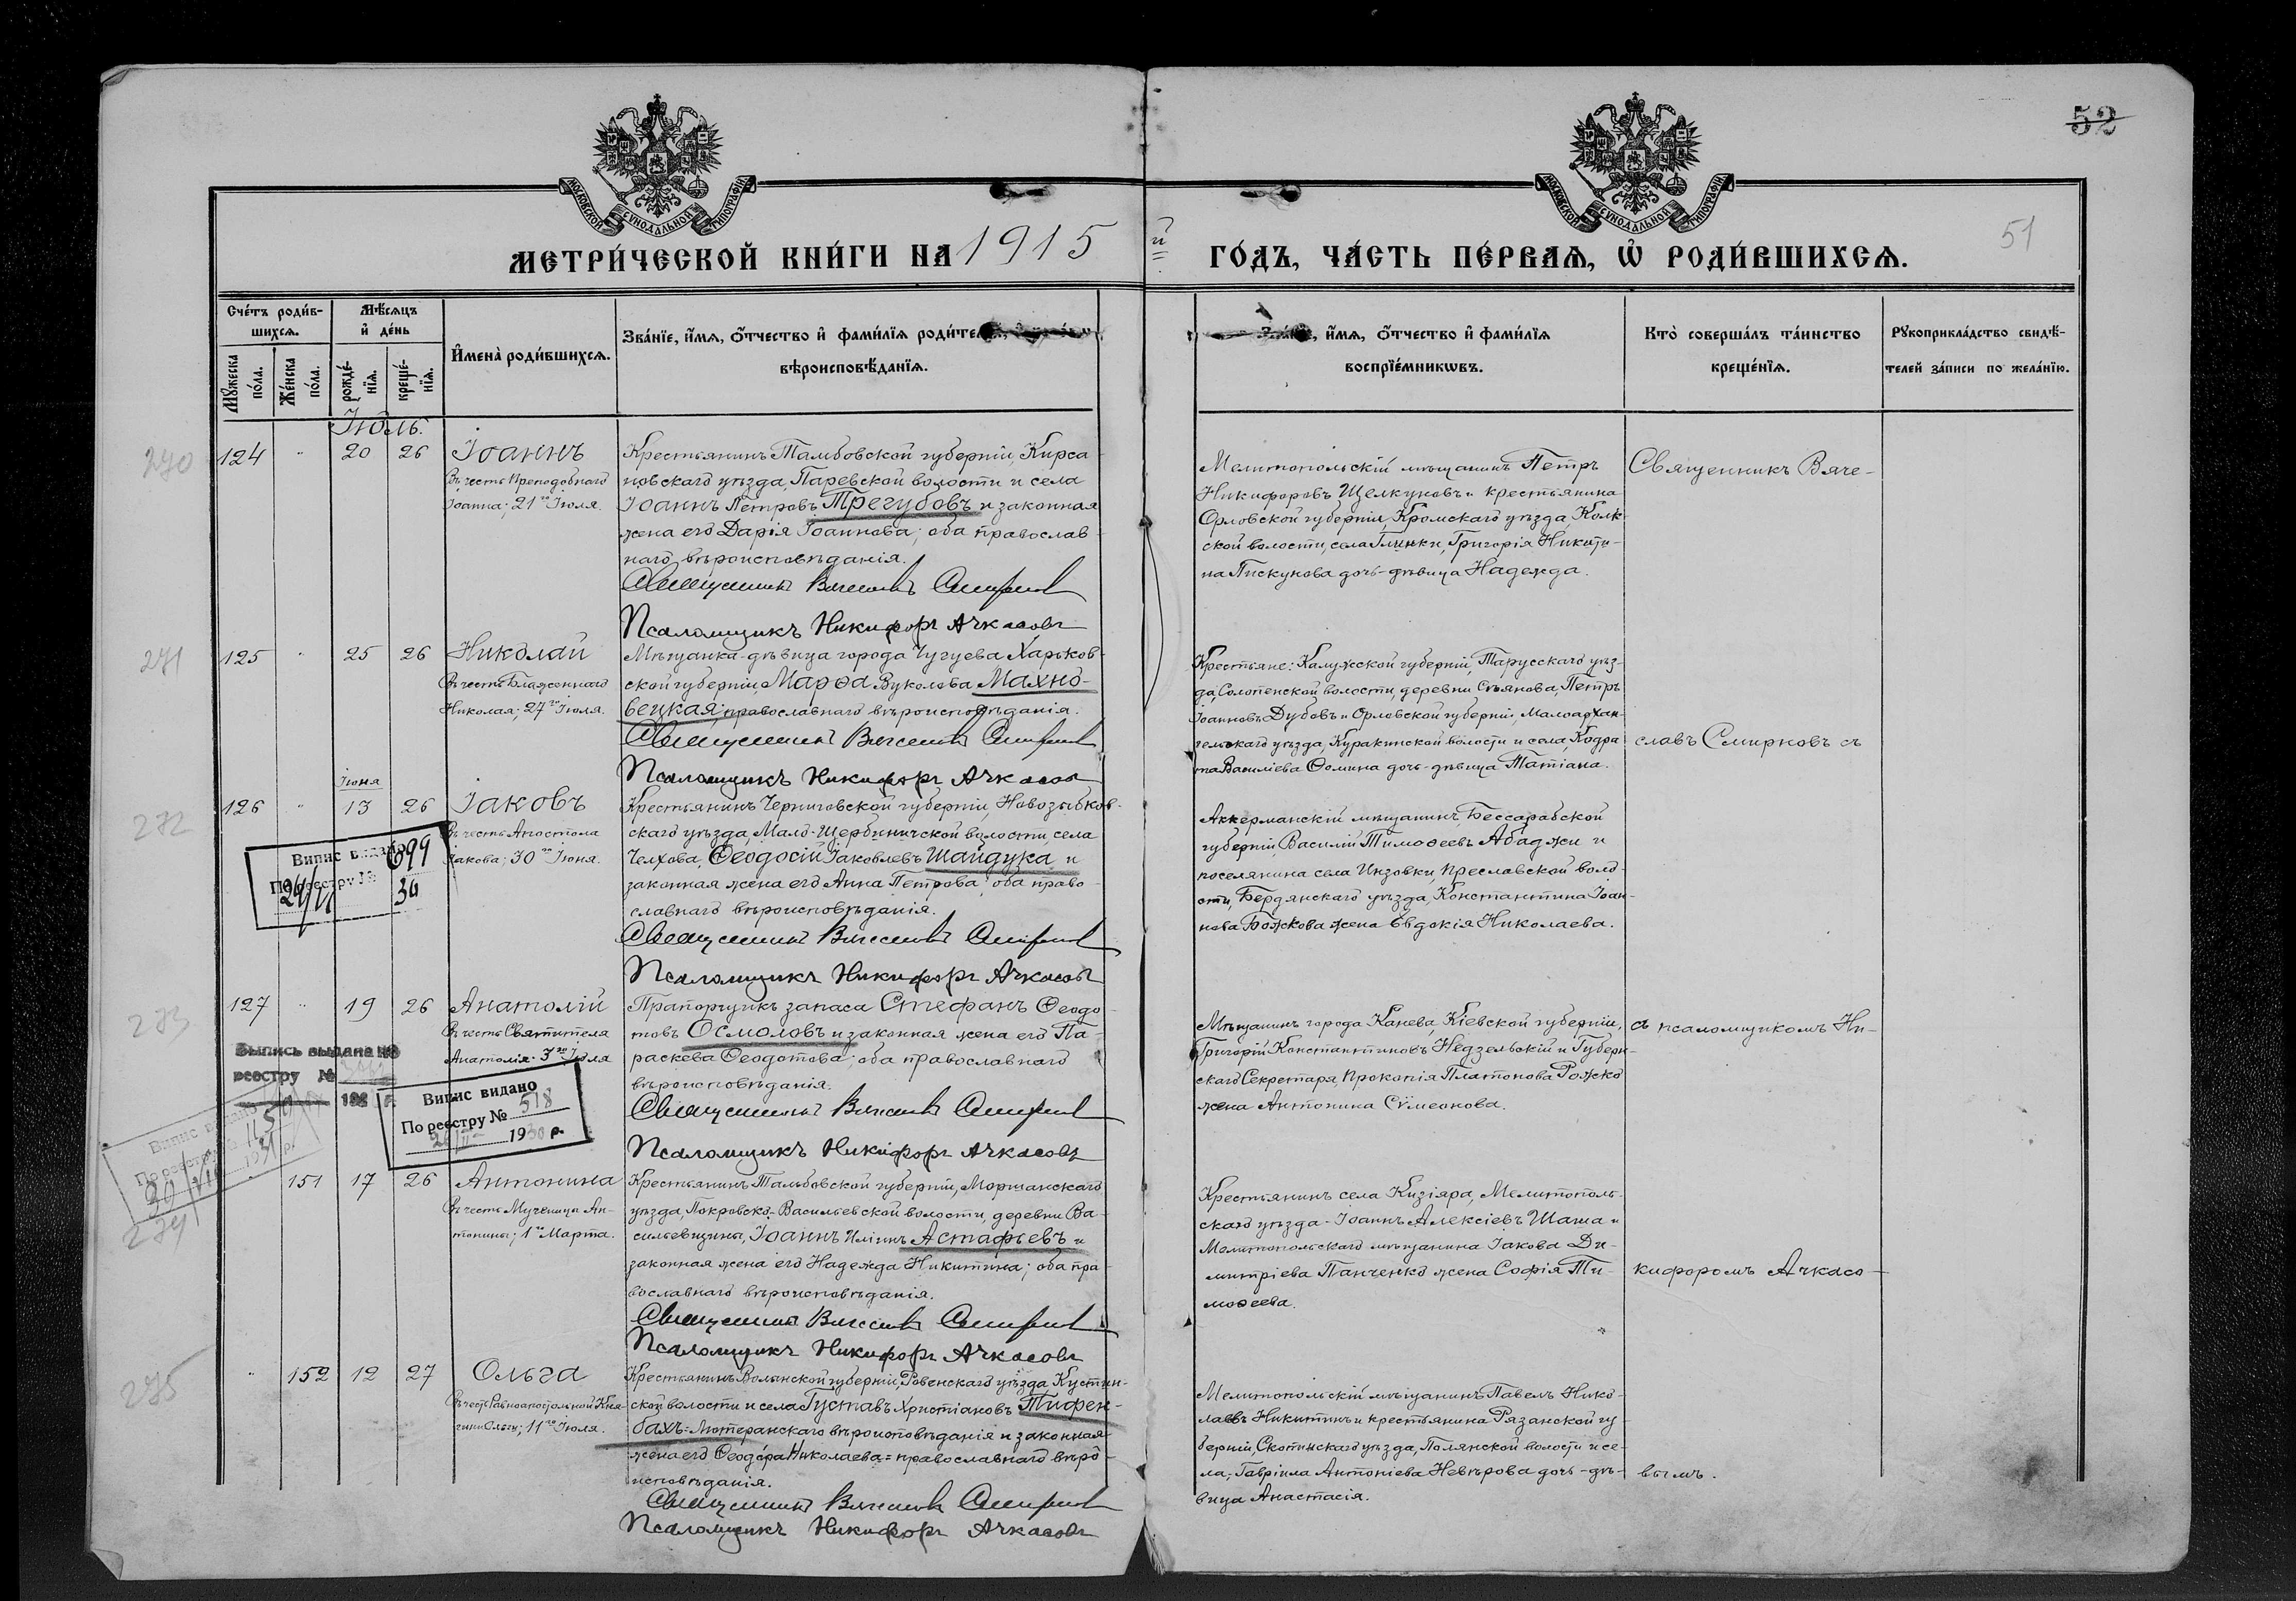 52
51
МОСКОВСКОЙ СУНОДАЛЬНОЙ ТИПОГРАФІИ
МОСКОВСКОЙ СУНОДАЛЬНОЙ ТИПОГРАФІИ
МЕТРИ́ЧЕСКОЙ КНИ́ГИ НА 1915 й ГО́ДЪ, ЧА́СТЬ ПЕ́РВАѦ, Ѡ҆ РОДИ́ВШИХСѦ.
Сче́тъ роди́в-
шихсѧ.
Мꙋ́жеска
по́ла.
Же́нска
по́ла.
Мѣ́сѧцъ
и҆ де́нь
рожде́-
нїѧ.
креще́-
нїѧ.
И҆мена̀ роди́вшихсѧ.
Зва́нїе, и҆́мѧ, о҆́тчество и҆ фами́лїѧ роди́те
вѣроисповѣ́данїѧ.
Зва́нїе, и҆́мѧ, о҆́тчество и҆ фами́лїѧ
воспрїе́мникѡвъ.
Кто̀ соверша́лъ та́инство
креще́нїѧ.
Рꙋкоприкла́дство свидѣ́-
телей за́писи по жела́нїю.
Іюль.
270
124 " 20 26 Іоаннъ
Въ честь Преподобнаго
Іоанна; 21го Іюля.
Крестьянинъ Тамбовской губерніи, Кирса-
новскаго уѣзда, Паревской волости и села
Іоаннъ Петровъ Трегубовъ и законная
жена его Дарія Іоаннова; оба православ-
наго вѣроисповѣданія.
Священникъ Вячеславъ Смирновъ
Псаломщикъ Никифоръ Ачкасовъ
Мелитопольскій мѣщанинъ Петръ
Никифоровъ Щелкуновъ и крестьянина
Орловской губерніи, Кромскаго уѣзда, Колк-
ской волости, села Глинки, Григорія Никити-
на Пискунова дочь-дѣвица Надежда.
Священникъ Вяче-
271
125 " 25 26 Николай
Въ честь Блаженнаго
Николая; 27го Іюля.
Мѣщанка-дѣвица города Чугуева Харьков-
ской губерніи Марѳа Вуколова Махно-
вецкая; православнаго вѣроисповѣданія.
Священникъ Вячеславъ Смирновъ
Псаломщикъ Никифоръ Ачкасовъ
Крестьяне: Калужской губерніи, Тарусскаго уѣз-
да, Солопенской волости, деревни Сѣянова, Петръ
Іоанновъ Дубовъ и Орловской губерніи, Малоархан-
гельскаго уѣзда, Куракинской волости и села, Кодра-
та Василіева Ѳомина дочь-дѣвица Татіана.
славъ Смирновъ съ
Іюня
272
126 " 13 26 Іаковъ
Въ честь Апостола
Іакова; 30го Іюня.
Випис видано 699
По реестру №
24/VI 34
Крестьянинъ Черниговской губерніи, Новозыбков-
скаго уѣзда, Мало-Щербиничской волости, села
Челхова, Ѳеодосій Іаковлевъ Шайдука и
законная жена его Анна Петрова; оба право-
славнаго вѣроисповѣданія.
Священникъ Вячеславъ Смирновъ
Псаломщикъ Никифоръ Ачкасовъ
Аккерманскій мѣщанинъ, Бессарабской
губерніи, Василій Тимоѳеевъ Абаджи и
поселянина села Инзовки, Преславской воло-
сти, Бердянскаго уѣзда, Константина Іоан-
нова Божкова жена Евдокія Николаева.
273
127 " 19 26 Анатолій
Въ честь Святителя
Анатолія 3го Іюля
Выпись выдана по
реестру №
192 г.
Випис видано
По реестру № 518
1930 р.
Випис видано
По реестру № 115
30/VII 1931 р.
Прапорщикъ запаса Стефанъ Ѳеодо-
товъ Осмоловъ и законная жена его Па-
раскева Ѳеодотова; оба православнаго
вѣроисповѣданія.
Священникъ Вячеславъ Смирновъ
Псаломщикъ Никифоръ Ачкасовъ
Мѣщанинъ города Канева, Кіевской губерніи,
Григорій Константиновъ Недзельскій и Губерн-
скаго Секретаря, Прокопія Платонова Рожко
жена Антонина Сѵмеонова.
съ псаломщикомъ Ни-
274
" 151 17 26 Антонина
Въ честь Мученицы Ан-
тонины; 1го Марта.
Крестьянинъ Тамбовской губерніи, Моршанскаго
уѣзда, Покровско-Васильевской волости, деревни Ва-
сильевщины, Іоаннъ Иліинъ Астафьевъ и
законная жена его Надежда Никитина; оба пра-
вославнаго вѣроисповѣданія.
Священникъ Вячеславъ Смирновъ
Псаломщикъ Никифоръ Ачкасовъ
Крестьянинъ села Кизіяра, Мелитополь-
скаго уѣзда - Іоаннъ Алексіевъ Шаша и
Мелитопольскаго мѣщанина Іакова Ди-
митріева Панченко жена Софія Ти-
моѳеева.
кифоромъ Ачкасо-
275
" 152 12 27 Ольга
Въ честь Равноапостольной Кня-
гини Ольги; 11го Іюля.
Крестьянинъ Волынской губерніи, Ровенскаго уѣзда, Кустин-
ской волости и села Густавъ Христіановъ Тифен-
бахъ - лютеранскаго вѣроисповѣданія и законная
жена его Ѳеодора Николаева = православнаго вѣро-
исповѣданія.
Священникъ Вячеславъ Смирновъ
Псаломщикъ Никифоръ Ачкасовъ
Мелитопольскій мѣщанинъ Павелъ Нико-
лаевъ Никитинъ и крестьянина Рязанской гу-
берніи, Скопинскаго уѣзда, Полянской волости и се-
ла, Гавріила Антоніева Невѣрова дочь-дѣ-
вица Анастасія.
вымъ.